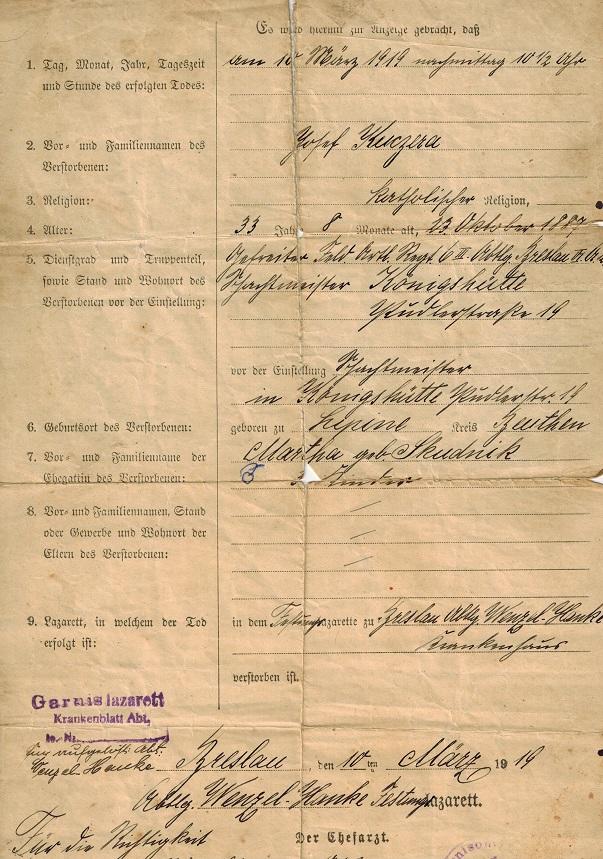 Es wird hiermit zur Anzeige gebracht, daß
1. Tag, Monat, Jahr, Tageszeit und Stunde des erfolgten Todes:
am 10 März 1919 nachmittag 10 1/2 Uhr
2. Vor- und Familiennamen des Verstorbenen:
Josef Kuczera
3. Religion:
katholischer Religion,
4. Alter:
33 Jahr 8 Monate alt, 23 Oktober 1887
5. Dienstgrad und Truppenteil, sowie Stand und Wohnort des Verstorbenen vor der Einstellung:
Gefreiter Feld Artl. Regt 6 III. Abtlg. Breslau
Schachtmeister Königshütte
Pudlerstraße 19
vor der Einstellung Schachtmeister
in Königshütte Pudlerstr. 19
6. Geburtsort des Verstorbenen:
geboren zu Lipine Kreis Beuthen
7. Vor- und Familienname der Ehegattin des Verstorbenen:
Martha geb. Skudnik
Kinder
8. Vor- und Familiennamen, Stand oder Gewerbe und Wohnort der Eltern des Verstorbenen:
9. Lazarett, in welchem der Tod erfolgt ist:
in dem Festungslazarette zu Breslau Abtlg. Wenzel-Hanke
Krankenhaus
verstorben ist.
Garnislazarett
Krankenblatt Abt.
Wenzel-Hanke
Breslau, den 10ten März 1919
Abtlg. Wenzel-Hanke Festungslazarett.
Für die Richtigkeit
Der Chefarzt.